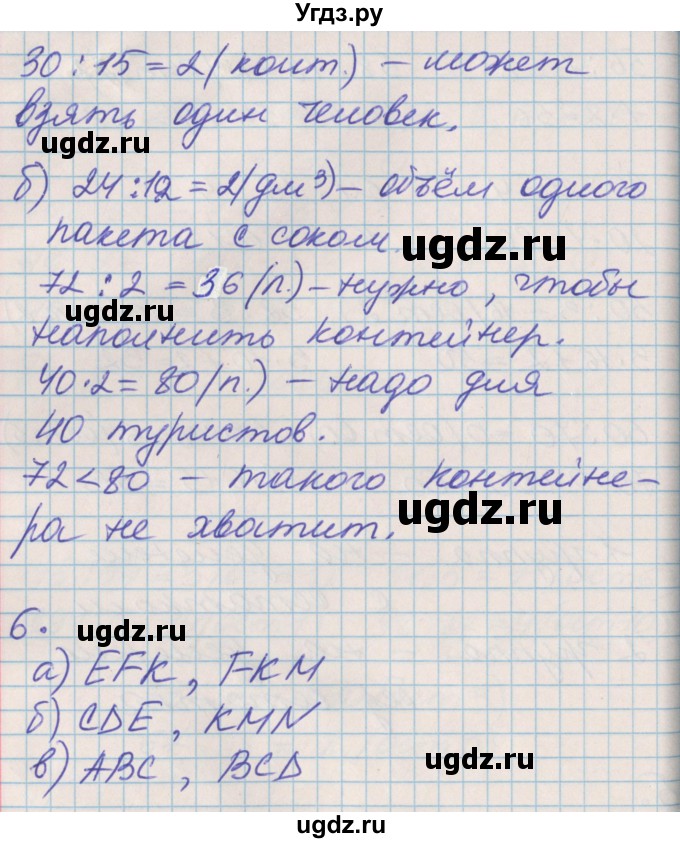 Угдз.ру
30 : 15 = 2 (конт.) – может
взять один человек.
ugdz.ru
б) 24 : 12 = 2 (дм³) – объём одного
пакета с соком.
ugdz.ru
72 : 2 = 36 (п.) – нужно, чтобы
ugdz.ru
наполнить контейнер.
40 · 2 = 80 (п.) – надо для
40 туристов.
72 < 80 – такого контейне-
ра не хватит.
ugdz.ru
6.
ugdz.ru
а) EFK, FKM
б) CDE, KMN
в) ABC, BCD
ugdz.ru
ugdz.ru